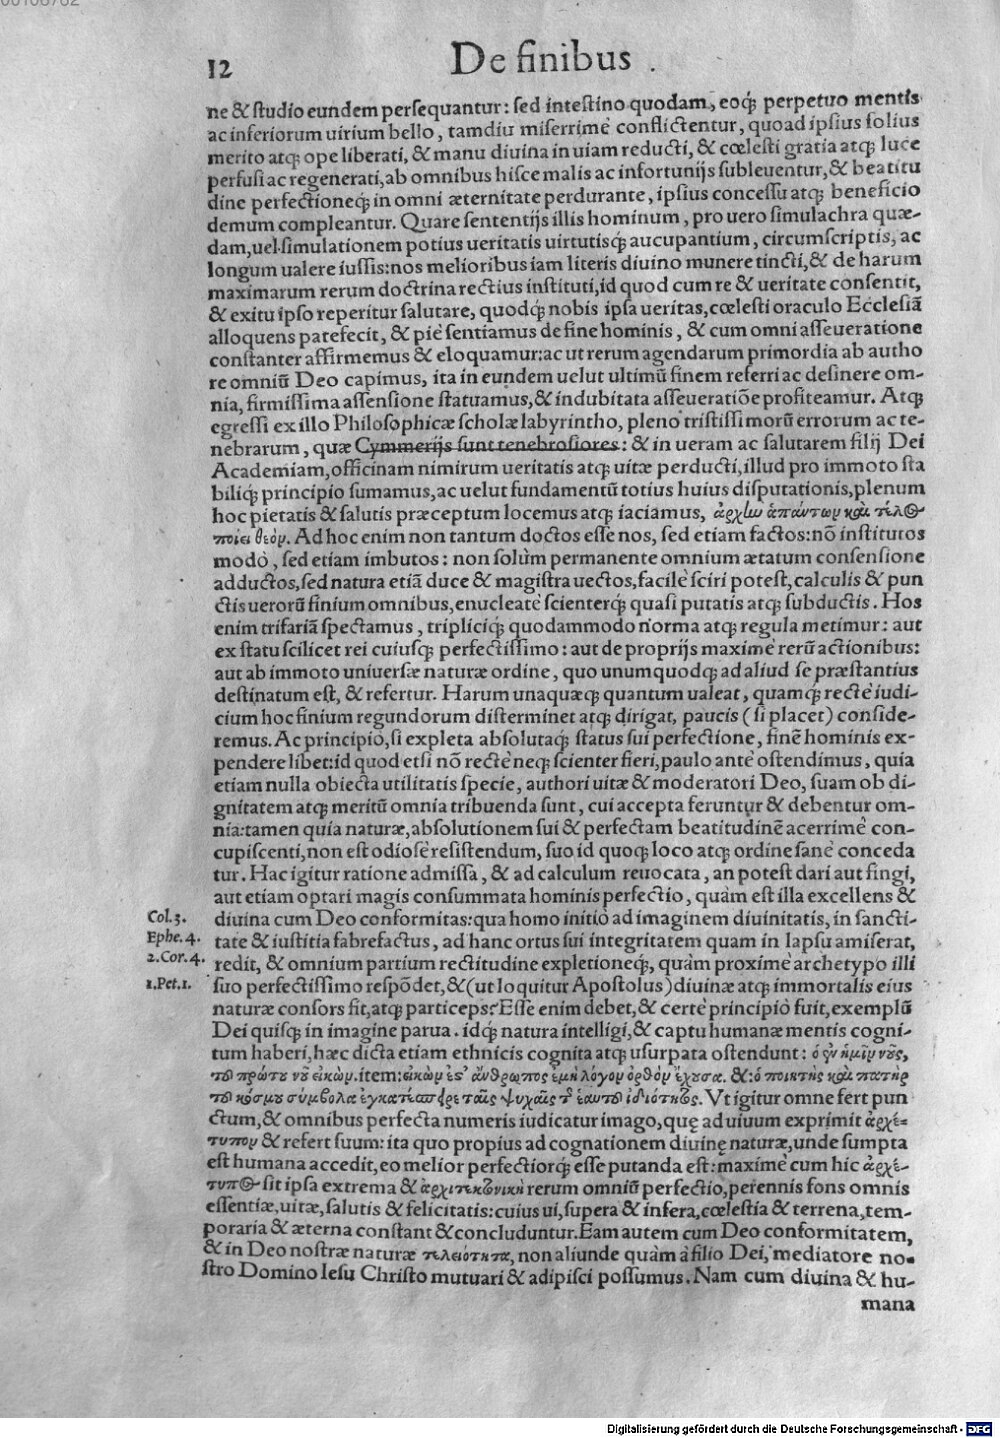 00108782
12 De finibus.
ne & ſtudio eundem perſequantur: ſed inteſtino quodam, eoq́; perpetuo mentis
ac inferiorum uirium bello, tamdiu miſerrimè conflictentur, quoad ipſius ſolius
merito atq; ope liberati, & manu diuina in uiam reducti, & cœleſti gratia atq; luce
perfuſi ac regenerati, ab omnibus hiſce malis ac infortunijs ſubleuentur, & beatitu
dine perfectioneq́; in omni æternitate perdurante, ipſius conceſſu atq; beneficio
demum compleantur. Quare ſententijs illis hominum, pro uero ſimulachra quæ-
dam, uel ſimulationem potius ueritatis uirtutisq́; aucupantium, circumſcriptis, ac
longum ualere iuſsis: nos melioribus iam literis diuino munere tincti, & de harum
maximarum rerum doctrina rectius inſtituti, id quod cum re & ueritate conſentit,
& exitu ipſo reperitur ſalutare, quodq́; nobis ipſa ueritas, cœleſti oraculo Eccleſiā
alloquens patefecit, & piè ſentiamus de fine hominis, & cum omni aſſeueratione
conſtanter affirmemus & eloquamur: ac ut rerum agendarum primordia ab autho
re omniū Deo capimus, ita in eundem uelut ultimū finem referri ac deſinere om-
nia, firmiſſima aſſenſione ſtatuamus, & indubitata aſſeueratiōe profiteamur. Atq;
egreſſi ex illo Philoſophicæ ſcholæ labyrintho, pleno triſtiſſimorū errorum ac te-
nebrarum, quæ Cymmerijs ſunt tenebroſiores: & in ueram ac ſalutarem filij Dei
Academiam, officinam nimirum ueritatis atq; uitæ perducti, illud pro immoto ſta
biliq́; principio ſumamus, ac uelut fundamentū totius huius diſputationis, plenum
hoc pietatis & ſalutis præceptum locemus atq; iaciamus, ἀρχὴν ἁπάντων καὶ τέλος
ποίει θεόν. Ad hoc enim non tantum doctos eſſe nos, ſed etiam factos: nō inſtitutos
modò, ſed etiam imbutos: non ſolùm permanente omnium ætatum conſenſione
adductos, ſed natura etiā duce & magiſtra uectos, facilè ſciri poteſt, calculis & pun
ctis uerorū finium omnibus, enucleatè ſcienterq́; quaſi putatis atq; ſubductis. Hos
enim trifariā ſpectamus, tripliciq́; quodammodo norma atq; regula metimur: aut
ex ſtatu ſcilicet rei cuiuſq; perfectiſſimo: aut de proprijs maximè rerū actionibus:
aut ab immoto uniuerſæ naturæ ordine, quo unumquodq; ad aliud ſe præſtantius
deſtinatum eſt, & refertur. Harum unaquæq; quantum ualeat, quamq́; rectè iudi-
cium hoc finium regundorum diſterminet atq; dirigat, paucis (ſi placet) conſide-
remus. Ac principiò, ſi expleta abſolutaq́; ſtatus ſui perfectione, finē hominis ex-
pendere libet: id quod etſi nō rectè neq; ſcienter fieri, paulo antè oſtendimus, quia
etiam nulla obiecta utilitatis ſpecie, authori uitæ & moderatori Deo, ſuam ob di-
gnitatem atq; meritū omnia tribuenda ſunt, cui accepta feruntur & debentur om-
nia: tamen quia naturæ, abſolutionem ſui & perfectam beatitudinē acerrimè con-
cupiſcenti, non eſt odioſè reſiſtendum, ſuo id quoq; loco atq; ordine ſanè conceda
tur. Hac igitur ratione admiſſa, & ad calculum reuocata, an poteſt dari aut fingi,
aut etiam optari magis conſummata hominis perfectio, quàm eſt illa excellens &
Col. 3. diuina cum Deo conformitas: qua homo initiò ad imaginem diuinitatis, in ſancti-
Ephe. 4. tate & iuſtitia fabrefactus, ad hanc ortus ſui integritatem quam in lapſu amiſerat,
2. Cor. 4. redit, & omnium partium rectitudine expletioneq́;, quàm proximè archetypo illi
1. Pet. 1. ſuo perfectiſſimo reſpōdet, & (ut loquitur Apoſtolus) diuinæ atq; immortalis eius
naturæ conſors fit, atq; particeps? Eſſe enim debet, & certè principiò fuit, exemplū
Dei quiſq; in imagine parua. idq; natura intelligi, & captu humanæ mentis cogni-
tum haberi, hæc dicta etiam ethnicis cognita atq; uſurpata oſtendunt: ὁ ἐν ἡμῖν νοῦς,
τοῦ πρώτου νοῦ εἰκών. item: εἰκὼν ἐς' ἄνθρωπος ἐμὴ λόγον ὀρθὸν ἔχουσα. &: ὁ ποιητὴς καὶ πατὴρ
τοῦ κόσμου σύμβολα ἐγκατέσπειρε ταῖς ψυχαῖς τ͂ ἑαυτοῦ ἰδιότητος. Vt igitur omne fert pun
ctum, & omnibus perfecta numeris iudicatur imago, quę ad uiuum exprimit ἀρχέ-
τυπον & refert ſuum: ita quo propius ad cognationem diuinę naturæ, unde ſumpta
eſt humana accedit, eo melior perfectiorq́; eſſe putanda eſt: maximè cum hic ἀρχέ-
τυπος ſit ipſa extrema & ἀρχιτεκτονικὴ rerum omniū perfectio, perennis fons omnis
eſſentiæ, uitæ, ſalutis & felicitatis: cuius ui, ſupera & infera, cœleſtia & terrena, tem-
poraria & æterna conſtant & concluduntur. Eam autem cum Deo conformitatem,
& in Deo noſtræ naturæ τελειότητα, non aliunde quàm à filio Dei, mediatore no-
ſtro Domino Ieſu Chriſto mutuari & adipiſci poſſumus. Nam cum diuina & hu-
mana
Digitalisierung gefördert durch die Deutsche Forschungsgemeinschaft - DFG